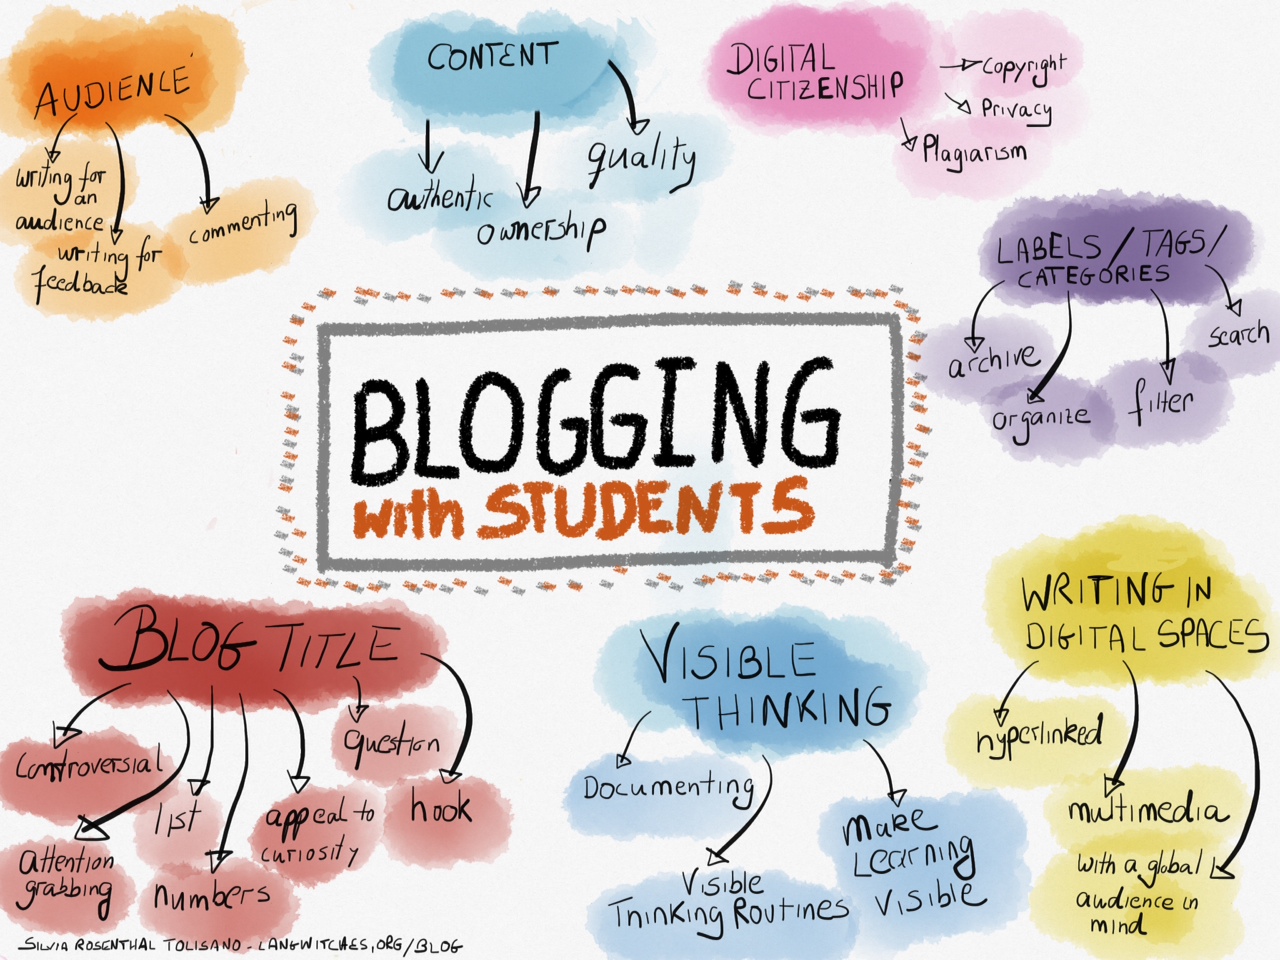 AUDIENCE
writing for
an
audience
writing for
feedback
commenting
CONTENT
authentic
ownership
quality
DIGITAL
CITIZENSHIP
copyright
Privacy
Plagiarism
LABELS/TAGS/
CATEGORIES
archive
organize
filter
search
BLOGGING
with STUDENTS
BLOG TITLE
controversial
attention
grabbing
list
numbers
appeal to
curiosity
question
hook
VISIBLE
THINKING
Documenting
Visible
Thinking Routines
Make
Learning
Visible
WRITING IN
DIGITAL SPACES
hyperlinked
multimedia
with a global
audience in
mind
SILVIA ROSENTHAL TOLISANO - LANGWITCHES.ORG/BLOG